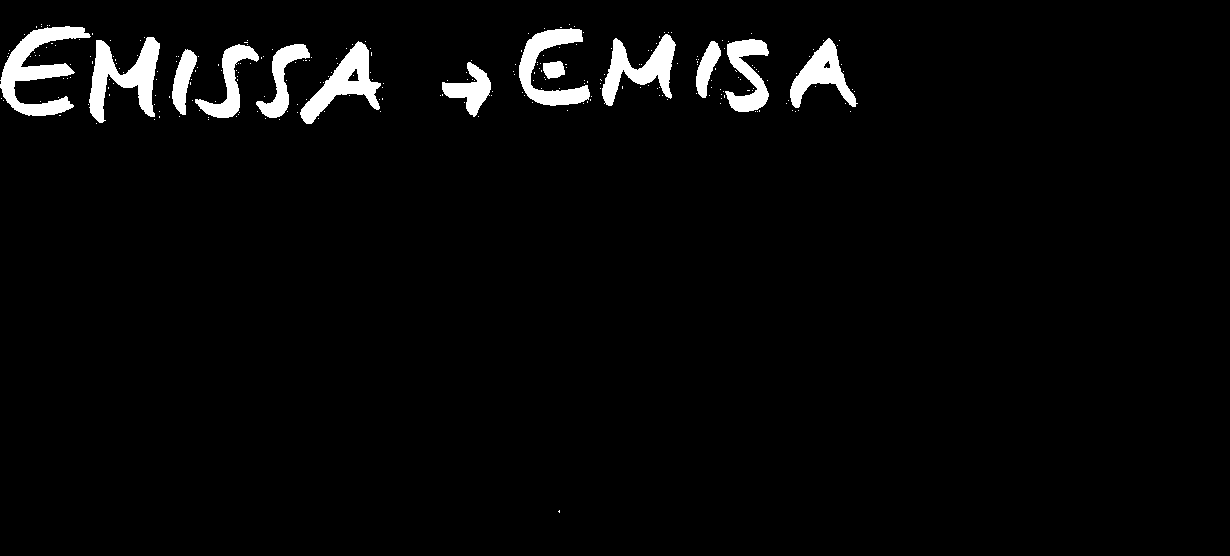 EMISSA → EMISA